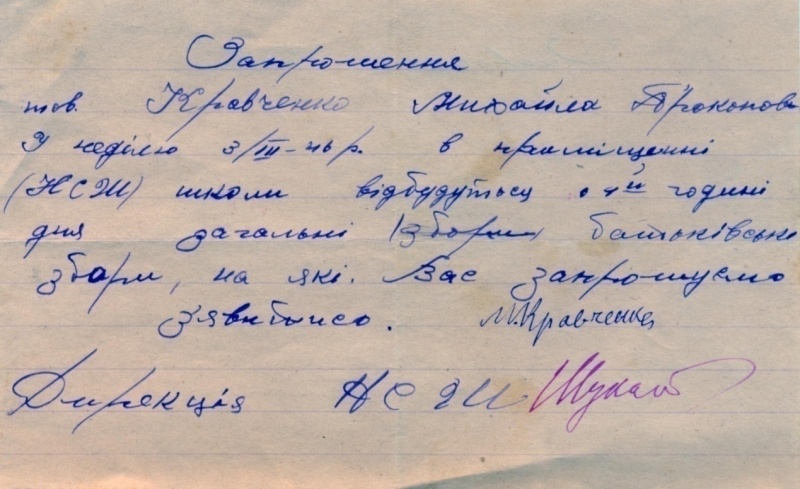 Запрошення
тов. Кравченко Михайла Прокопов
У неділю 3/III-46 р. в приміщенні
(НСШ) школи відбудуться о 4й годині
дня загальні збори батьківські
збори, на які. Вас запрошуємо
зявитися. М. Кравченко
Дирекція НСШ